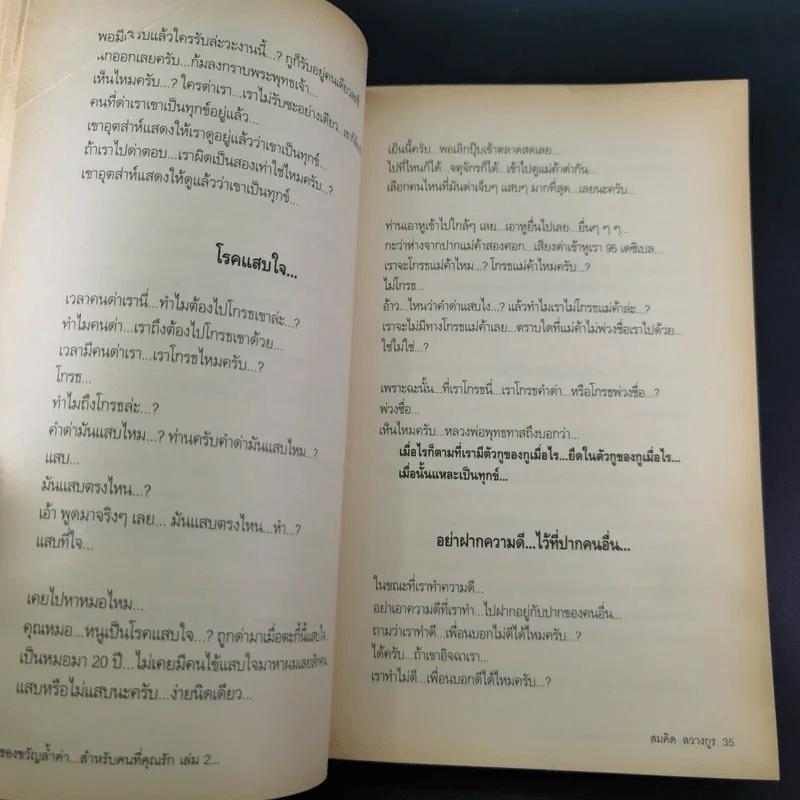 พอมีเจ็บแล้วใครรับล่ะวะงานนี้...? กูก็รับอยู่คนเดียว
นึกออกเลยครับ...ก้มลงกราบพระพุทธเจ้า...
เห็นไหมครับ...? ใครด่าเรา...เราไม่รับซะอย่างเดียว...
คนที่ด่าเราเขาเป็นทุกข์อยู่แล้ว...
เขาอุตส่าห์แสดงให้เราดูอยู่แล้วว่าเขาเป็นทุกข์...
ถ้าเราไปด่าตอบ...เราผิดเป็นสองเท่าใช่ไหมครับ...?
เขาอุตส่าห์แสดงให้ดูแล้วว่าเขาเป็นทุกข์...
โรคแสบใจ...
เวลาคนด่าเรานี่...ทำไมต้องไปโกรธเขาล่ะ...?
ทำไมคนด่า...เราถึงต้องไปโกรธเขาด้วย...
เวลามีคนด่าเรา...เราโกรธไหมครับ...?
โกรธ...
ทำไมถึงโกรธล่ะ...?
คำด่ามันแสบไหม...? ท่านครับคำด่ามันแสบไหม...?
แสบ...
มันแสบตรงไหน...?
เอ้า พูดมาจริงๆ เลย... มันแสบตรงไหน...ห๋า...?
แสบที่ใจ...
เคยไปหาหมอไหม...
คุณหมอ...หนูเป็นโรคแสบใจ...? ถูกด่ามาเมื่อตะกี้นี้แสบใจ
เป็นหมอมา 20 ปี...ไม่เคยมีคนไข้แสบใจมาหาผมเลยสักคน
แสบหรือไม่แสบนะครับ...ง่ายนิดเดียว...
ของขวัญล้ำค่า...สำหรับคนที่คุณรัก เล่ม 2...
เย็นนี้ครับ...พอเลิกปุ๊บเข้าตลาดสดเลย...
ไปที่ไหนก็ได้...จตุจักรก็ได้...เข้าไปดูแม่ค้าด่ากัน...
เลือกคนไหนที่มันด่าเจ็บๆ แสบๆ มากที่สุด...เลยนะครับ...
ท่านเอาหูเข้าไปใกล้ๆ เลย...เอาหูยื่นไปเลย...ยื่นๆ ๆ ๆ...
กะว่าห่างจากปากแม่ค้าสองศอก...เสียงด่าเข้าหูเรา 95 เดซิเบล...
เราจะโกรธแม่ค้าไหม...? โกรธแม่ค้าไหมครับ...?
ไม่โกรธ...
อ้าว...ไหนว่าคำด่าแสบไง...? แล้วทำไมเราไม่โกรธแม่ค้าล่ะ...?
เราจะไม่มีทางโกรธแม่ค้าเลย...ตราบใดที่แม่ค้าไม่พ่วงชื่อเราไปด้วย...
ใช่ไม่ใช่...?
เพราะฉะนั้น...ที่เราโกรธนี่...เราโกรธคำด่า...หรือโกรธพ่วงชื่อ...?
พ่วงชื่อ...
เห็นไหมครับ...หลวงพ่อพุทธทาสถึงบอกว่า...
เมื่อไรก็ตามที่เรามีตัวกูของกูเมื่อไร...ยึดในตัวกูของกูเมื่อไร...
เมื่อนั้นแหละเป็นทุกข์...
อย่าฝากความดี...ไว้ที่ปากคนอื่น...
ในขณะที่เราทำความดี...
อย่าเอาความดีที่เราทำ...ไปฝากอยู่กับปากของคนอื่น...
ถามว่าเราทำดี...เพื่อนบอกไม่ดีได้ไหมครับ...?
ได้ครับ...ถ้าเขาอิจฉาเรา...
เราทำไม่ดี...เพื่อนบอกดีได้ไหมครับ...?
สมคิด ลวางกูร 35